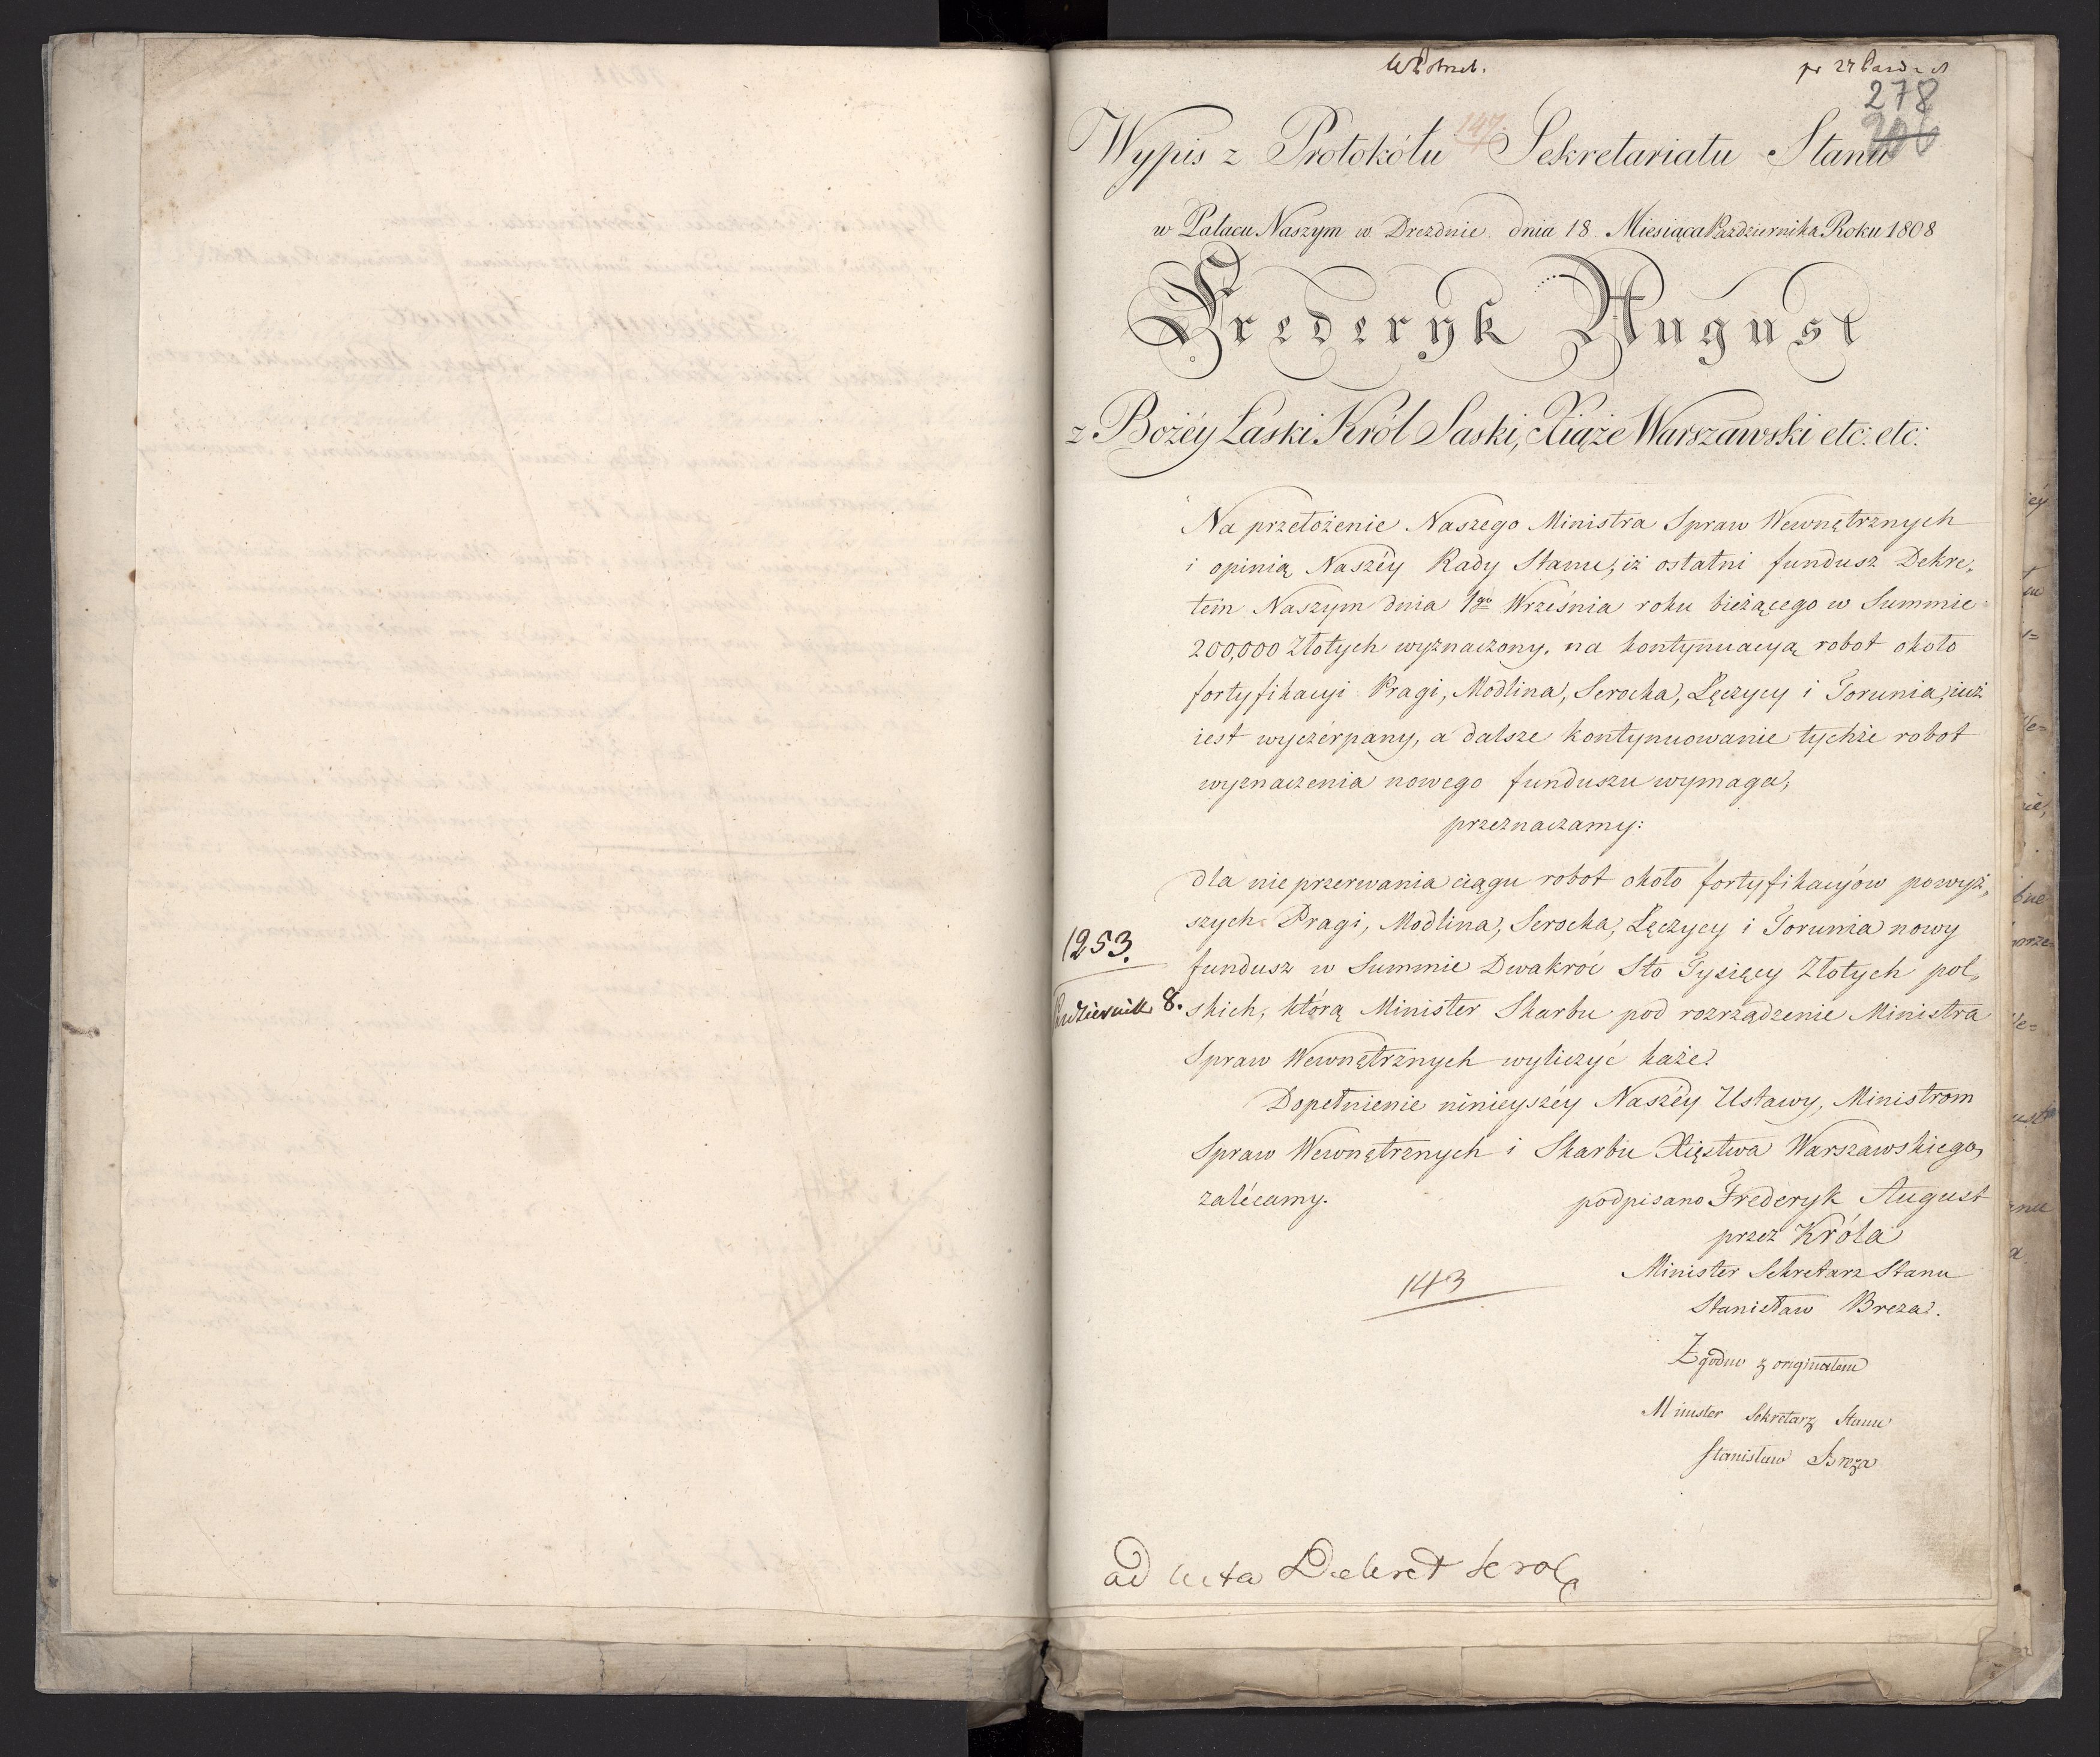 278
147.
Wypis z Protokółu Sekretariatu Stanu
w Pałacu Naszym w Dreznie dnia 18 Miesiąca Pazdziernika Roku 1808
Frederyk August
z Bożéy Łaski Król Saski, Xiąże Warszawski etc: etc:
Na przełożenie Naszego Ministra Spraw Wewnętrznych
i opinią Naszéy Rady Stanu, iż ostatni fundusz Dekre„
tem Naszym dnia 1go Września roku bieżącego w Summie
200,000 Złotych wyznaczony, na kontynuacyą robot około
fortyfikacyi Pragi, Modlina, Serocka, Łęczycy i Torunia, iuż
iest wyczérpany, a dalsze kontynuowanie tychże robot
wyznaczenia nowego funduszu wymaga;
przeznaczamy:
dla nie przerwania ciągu robot około fortyfikacyów powyż„
szych Pragi, Modlina, Serocka, Łęczycy i Torunia nowy
1253.
fundusz w Summie Dwakroć Sto Tysięcy Złotych pol„
8.
skich, którą Minister Skarbu pod rozrządzenie Ministra
Spraw Wewnętrznych wyliczyć każe.
Dopełnienie ninieyszéy Naszéy Ustawy, Ministrom
Spraw Wewnętrznych i Skarbu Xięstwa Warszawskiego,
zalécamy.
podpisano Frederyk August
przez Króla
Minister Sekretarz Stanu
143
Stanisław Breza.
Zgodno z originałem
Minister Sekretarz Stanu
Stanisław Breza
ad Acta Dekret Krol